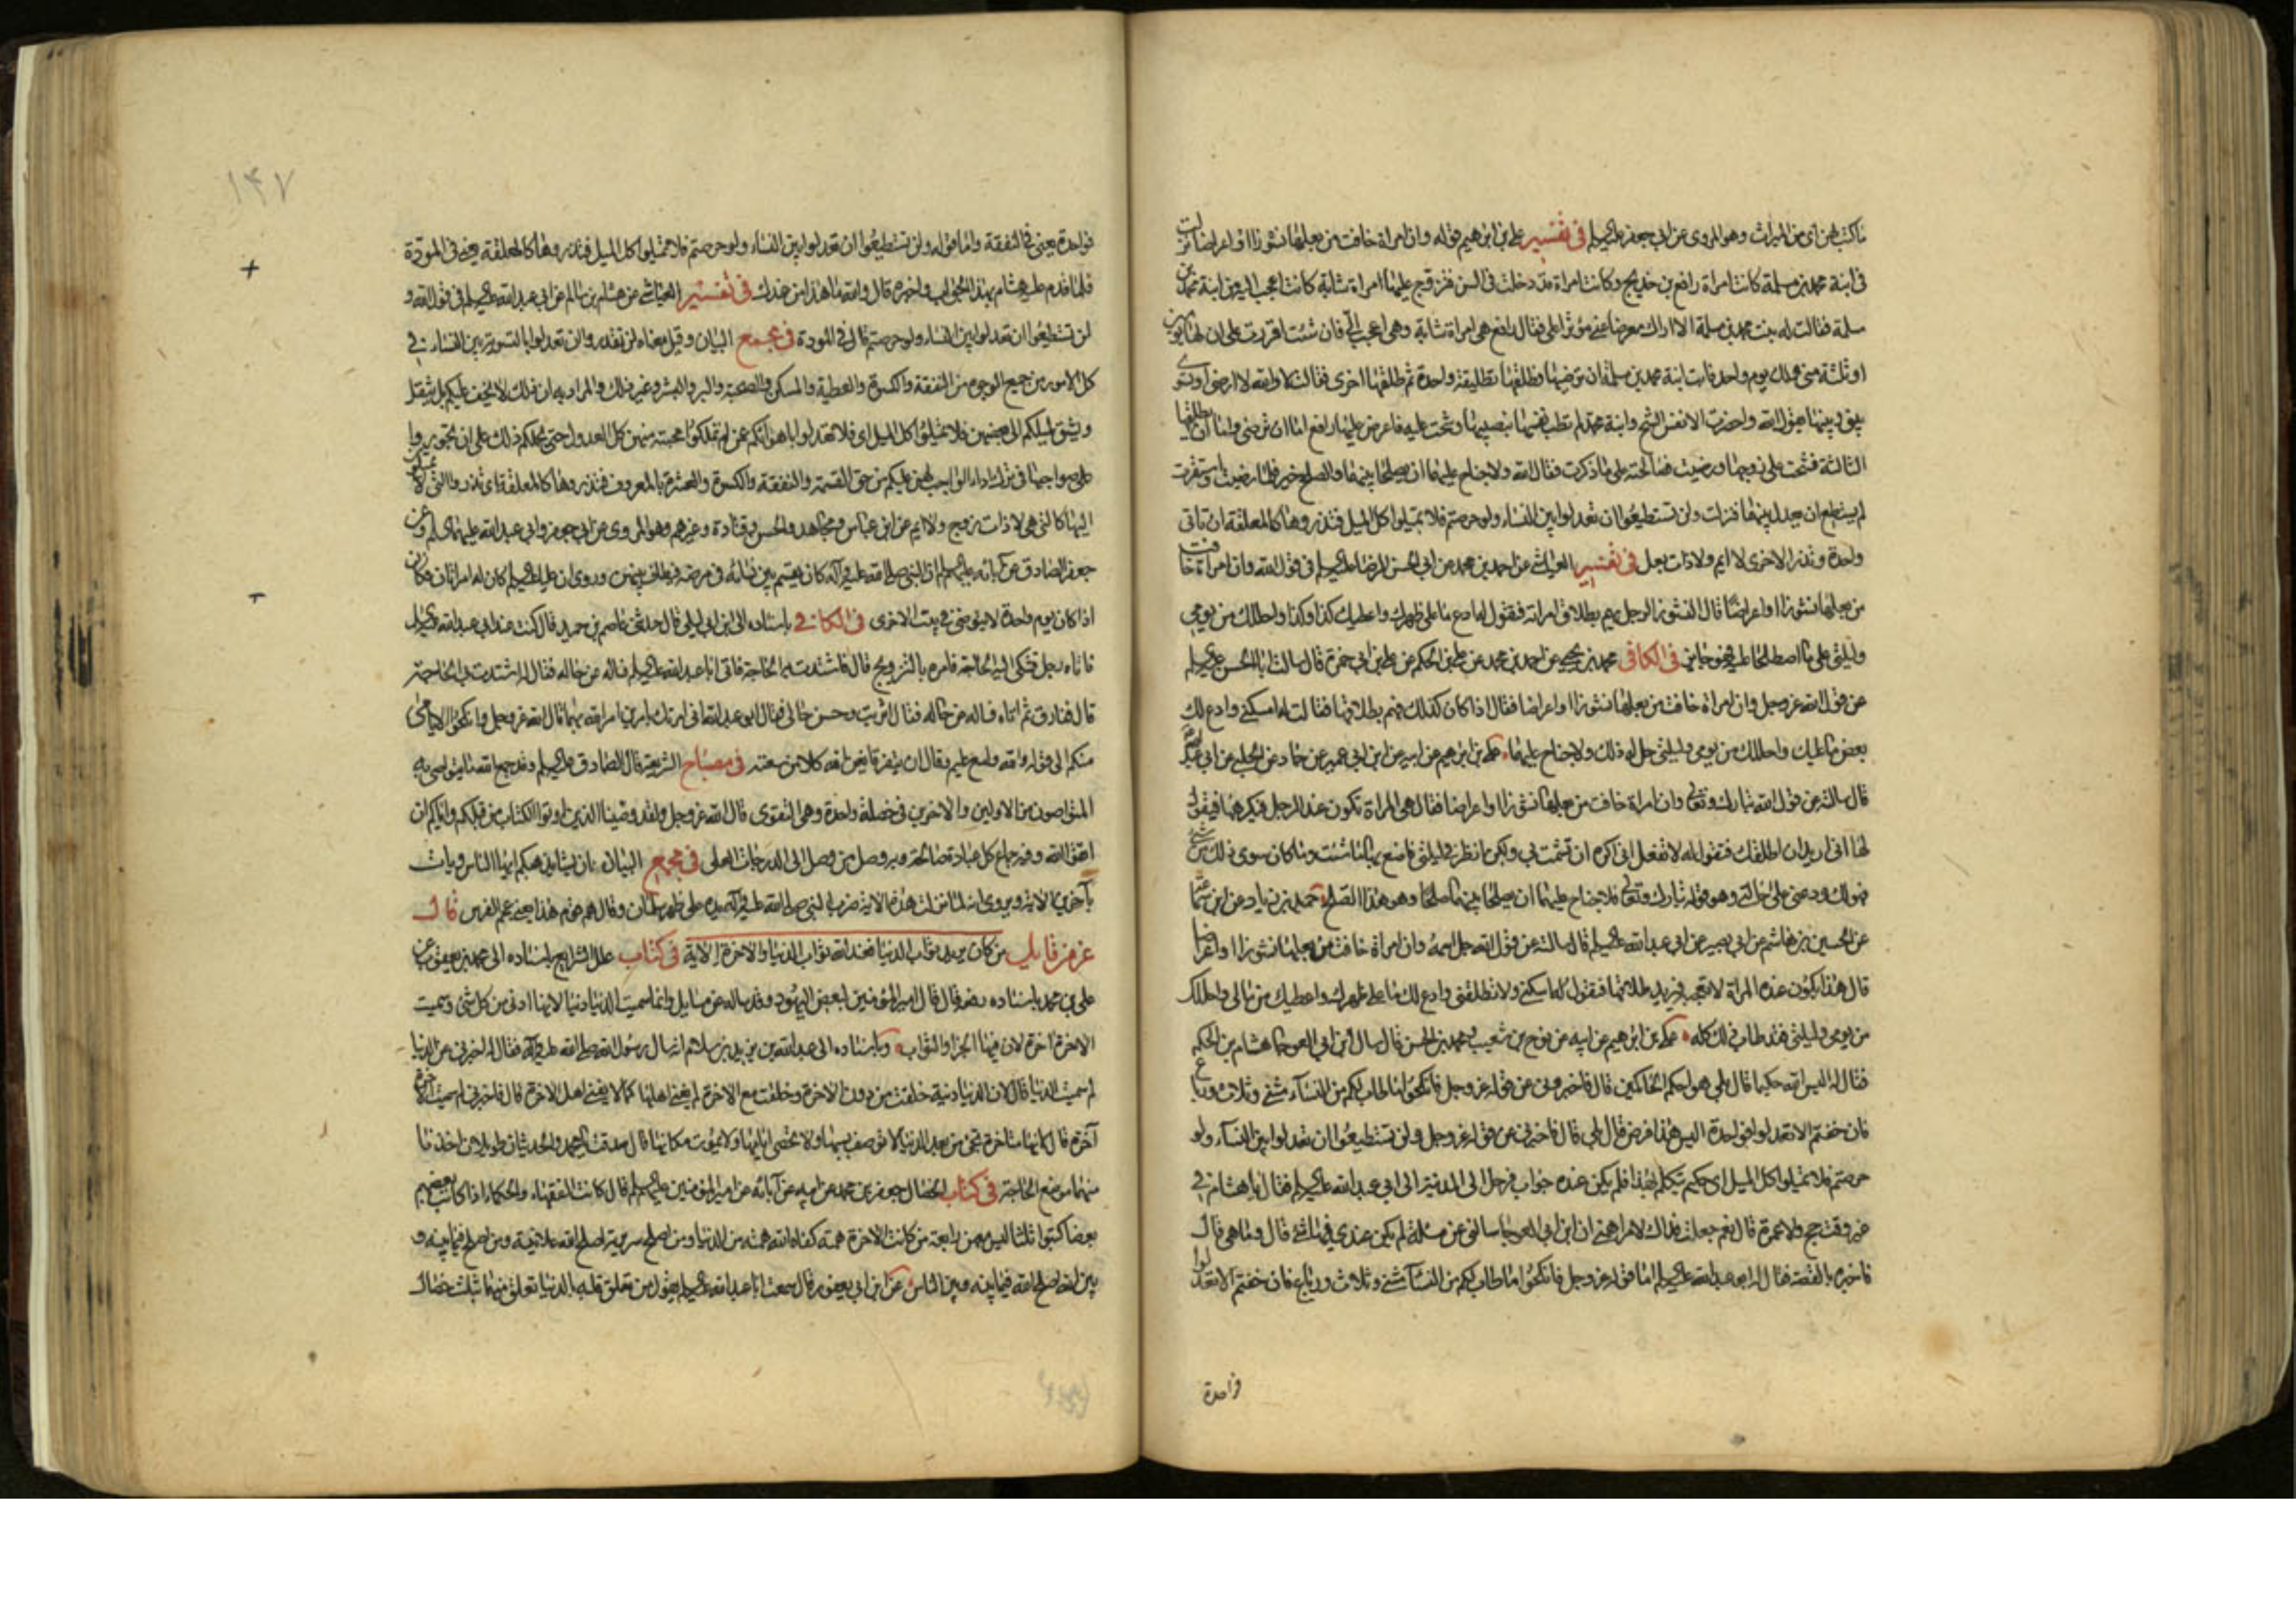 ما كتب لهن اى من الميراث وهو المروى عن ابى جعفر عليه السلم فى تفسير على بن ابرهيم قوله وان امراة خافت من بعلها نشوزا او اعراضا نزلت
فى ابنة محمد بن مسلمة كانت امراة رافع بن خديج وكانت امراة قد دخلت فى السن فتزوج عليها امراة شابة كانت اعجب اليه من ابنة محمد بن
سلمة فقالت له بنت محمد بن مسلمة الا اراك معرضا عنى مؤثرا على فقال رافع هى امراة شابة وهى اعجب الى فان شئت اقررت على ان لها يومين
او ثلثة منى ولك يوم واحد فابت ابنة محمد بن مسلمة ان ترضيها فطلقها تطليقة واحدة ثم طلقها اخرى فقالت لا والله لا ارضى او تسوى
بينى وبينها يقول الله واحضرت الانفس الشح وابنة محمد لم تطب نفسها بنصيبها وشحت عليه فاعرض عليها رافع اما ان ترضى واما ان يطلقها
الثالثة فشحت على زوجها ورضيت فصالحته على ما ذكرت فقال الله ولا جناح عليهما ان يصلحا بينهما والصلح خير فلما رضيت واستقرت
لم يستطع ان يعدل بينهما فنزلت ولن تستطيعوا ان تعدلوا بين النساء ولو حرصتم فلا تميلوا كل الميل فتذروها كالمعلقة ان تاتى
واحدة وتذر الاخرى لا ايم ولا ذات بعل فى تفسير العياشى عن احمد بن محمد عن ابى الحسن الرضا عليه السلم فى قول الله وان امراة خافت
من بعلها نشوزا او اعراضا قال النشوز الرجل يهم بطلاق امراته فتقول له ادع ما على ظهرك واعطيك كذا وكذا واحللك من يومى
وليلتى على ما اصطلحا عليه فهو جايز فى الكافى محمد بن يحيى عن احمد بن محمد عن على بن الحكم عن على بن ابى حمزة قال سالت ابا الحسن عليه السلم
عن قول الله عز وجل وان امراة خافت من بعلها نشوزا او اعراضا فقال اذا كان كذلك فهم بطلاقها فقالت له امسكنى وادع لك
بعض ما عليك واحللك من يومى وليلتى حل له ذلك ولا جناح عليهما على بن ابرهيم عن ابيه عن ابن ابى عمير عن حماد عن الحلبى عن ابى عبد الله
قال سالته عن قول الله تبارك وتعالى وان امراة خافت من بعلها نشوزا او اعراضا فقال هى المراة تكون عند الرجل فيكرهها فيقول
لها انى اريد ان اطلقك فتقول له لا تفعل انى اكره ان تشمت بى ولكن انظر فى ليلتى فاصنع بها ما شئت وما كان سوى ذلك من شئ
فهو لك ودعنى على حالتى وهو قوله تبارك وتعالى فلا جناح عليهما ان يصلحا بينهما صلحا وهو هذا الصلح حميد بن زياد عن ابن سماعة
عن الحسين بن هاشم عن ابى بصير عن ابى عبد الله عليه السلم قال سالته عن قول الله جل اسمه وان امراة خافت من بعلها نشوزا او اعراضا
قال هذا يكون عنده المراة لا تعجبه فيريد طلاقها فتقول له امسكنى ولا تطلقنى وادع لك ما على ظهرك واعطيك من مالى واحللك
من يومى وليلتى فقد طاب ذلك كله على بن ابرهيم عن ابيه عن نوح بن شعيب ومحمد بن الحسن قال سال ابن ابى العوجا هشام بن الحكم
فقال له اليس الله حكيما قال بلى هو احكم الحاكمين قال فاخبرنى عن قوله عز وجل فانكحوا ما طاب لكم من النساء مثنى وثلاث ورباع
فان خفتم الا تعدلوا فواحدة اليس هذا فرض قال بلى قال فاخبرنى عن قوله عز وجل ولن تستطيعوا ان تعدلوا بين النساء ولو
حرصتم فلا تميلوا كل الميل اى حكيم يتكلم بهذا فلم يكن عنده جواب فرحل الى المدينة الى ابى عبد الله عليه السلم فقال يا هشام فى
غير وقت حج ولا عمرة قال نعم جعلت فداك لامر اهمنى ان ابن ابى العوجا سالنى عن مسئلة لم يكن عندى فيها شئ قال وما هى قال
فاخبره بالقصة فقال له ابو عبد الله عليه السلم اما قوله عز وجل فانكحوا ما طاب لكم من النساء مثنى وثلاث ورباع فان خفتم الا تعدلوا
واحدة
١٤٧
فواحدة يعنى فى النفقة واما قوله ولن تستطيعوا ان تعدلوا بين النساء ولو حرصتم فلا تميلوا كل الميل فتذروها كالمعلقة يعنى فى المودة
فلما قدم عليه هشام بهذا الجواب واخبره قال والله ما هذا من عندك فى تفسير العياشى عن هشام بن سالم عن ابى عبد الله عليه السلم فى قول الله و
لن تستطيعوا ان تعدلوا بين النساء ولو حرصتم قال فى المودة فى مجمع البيان وقيل معناه لن تقدروا ان تعدلوا بالتسوية بين النساء فى
كل الامور من جميع الوجوه من النفقة والكسوة والعطية والمسكن والصحبة والبر والبشر وغير ذلك والمراد به ان ذلك لا يخف عليكم بل يثقل
ويشق لميلكم الى بعضهن فلا تميلوا كل الميل اى فلا تعدلوا باهوائكم عن لم تملكوا محبته منهن كل العدول حتى يحملكم ذلك على ان تجوروا
على صواحبها فى ترك اداء الواجب لهن عليكم من حق القسمة والنفقة والكسوة والعشرة بالمعروف فتذروها كالمعلقة اى تذروا التى لا تميلون
اليها كالتى هى لا ذات زوج ولا ايم عن ابن عباس ومجاهد والحسن وقتادة وغيرهم وهو المروى عن ابى جعفر وابى عبد الله عليهما السلم وعن
جعفر الصادق عن آبائه عليهم السلم ان النبى صلى الله عليه وآله كان يقسم بين نسائه فى مرضه فيطاف به بينهن وروى ان عليا عليه السلم كان له امراتان فكان
اذا كان يوم واحدة لا يتوضئ فى بيت الاخرى فى الكافى باسناده الى ابن ابى ليلى قال حدثنى عاصم بن حميد قال كنت عند ابى عبد الله عليه السلم
فاتاه رجل فشكى اليه الحاجة فامره بالتزويج قال فاشتدت به الحاجة فاتى ابا عبد الله عليه السلم فساله عن حاله فقال له اشتدت بى الحاجة
قال ففارق ثم اتاه فساله عن حاله فقال اثريت وحسن حالى فقال ابو عبد الله انى امرتك بامرين امر الله بهما قال الله عز وجل وانكحوا الايامى
منكم الى قوله والله واسع عليم وقال ان يتفرقا يغن الله كلا من سعته فى مصباح الشريعة قال الصادق عليه السلم وقد جمع الله ما يتواصى به
المتواصون من الاولين والاخرين فى خصلة واحدة وهى التقوى قال الله عز وجل ولقد وصينا الذين اوتوا الكتاب من قبلكم واياكم ان
اتقوا الله وفيه جماع كل عبادة صالحة وبه وصل من وصل الى الدرجات العلى فى مجمع البيان ان يشا يذهبكم ايها الناس ويات
بآخرين الاية ويروى انه لما نزلت هذه الاية ضرب النبى صلى الله عليه وآله يده على ظهر سلمان وقال هم قوم هذا يعنى عجم الفرس قال
عز من قايل من كان يريد ثواب الدنيا فعند الله ثواب الدنيا والاخرة الاية فى كتاب علل الشرايع باسناده الى محمد بن يعقوب عن
على بن محمد باسناده رفعه قال قال امير المؤمنين لبعض اليهود وقد ساله عن مسايل وانما سميت الدنيا دنيا لانها ادنى من كل شئ وسميت
الاخرة اخرة لان فيها الجزا والثواب وباسناده الى عبد الله بن يزيد بن سلام انه سال رسول الله صلى الله عليه وآله فقال له اخبرنى عن الدنيا
لم سميت الدنيا قال لان الدنيا دنية خلقت من دون الاخرة ولو خلقت مع الاخرة لم يفن اهلها كما لا يفنى اهل الاخرة قال فاخبرنى لم سميت الاخرة
آخرة قال لانها متاخرة تجئ من بعد الدنيا لا توصف سنيها ولا تحصى ايامها ولا يموت سكانها قال صدقت يا محمد والحديث طويل اخذنا
منهما موضع الحاجة فى كتاب الخصال جعفر بن محمد عن ابيه عن آبائه عن امير المؤمنين عليهم السلم قال كانت الفقهاء والحكماء اذا كاتب بعضهم
بعضا كتبوا ثلثا ليس معهن رابعة من كانت الاخرة همته كفاه الله همته من الدنيا ومن اصلح سريرته اصلح الله علانيته ومن اصلح فيما بينه و
بين الله اصلح الله فيما بينه وبين الناس عن ابن ابى يعفور قال سمعت ابا عبد الله عليه السلم يقول من تعلق قلبه بالدنيا تعلق منها بثلث خصال